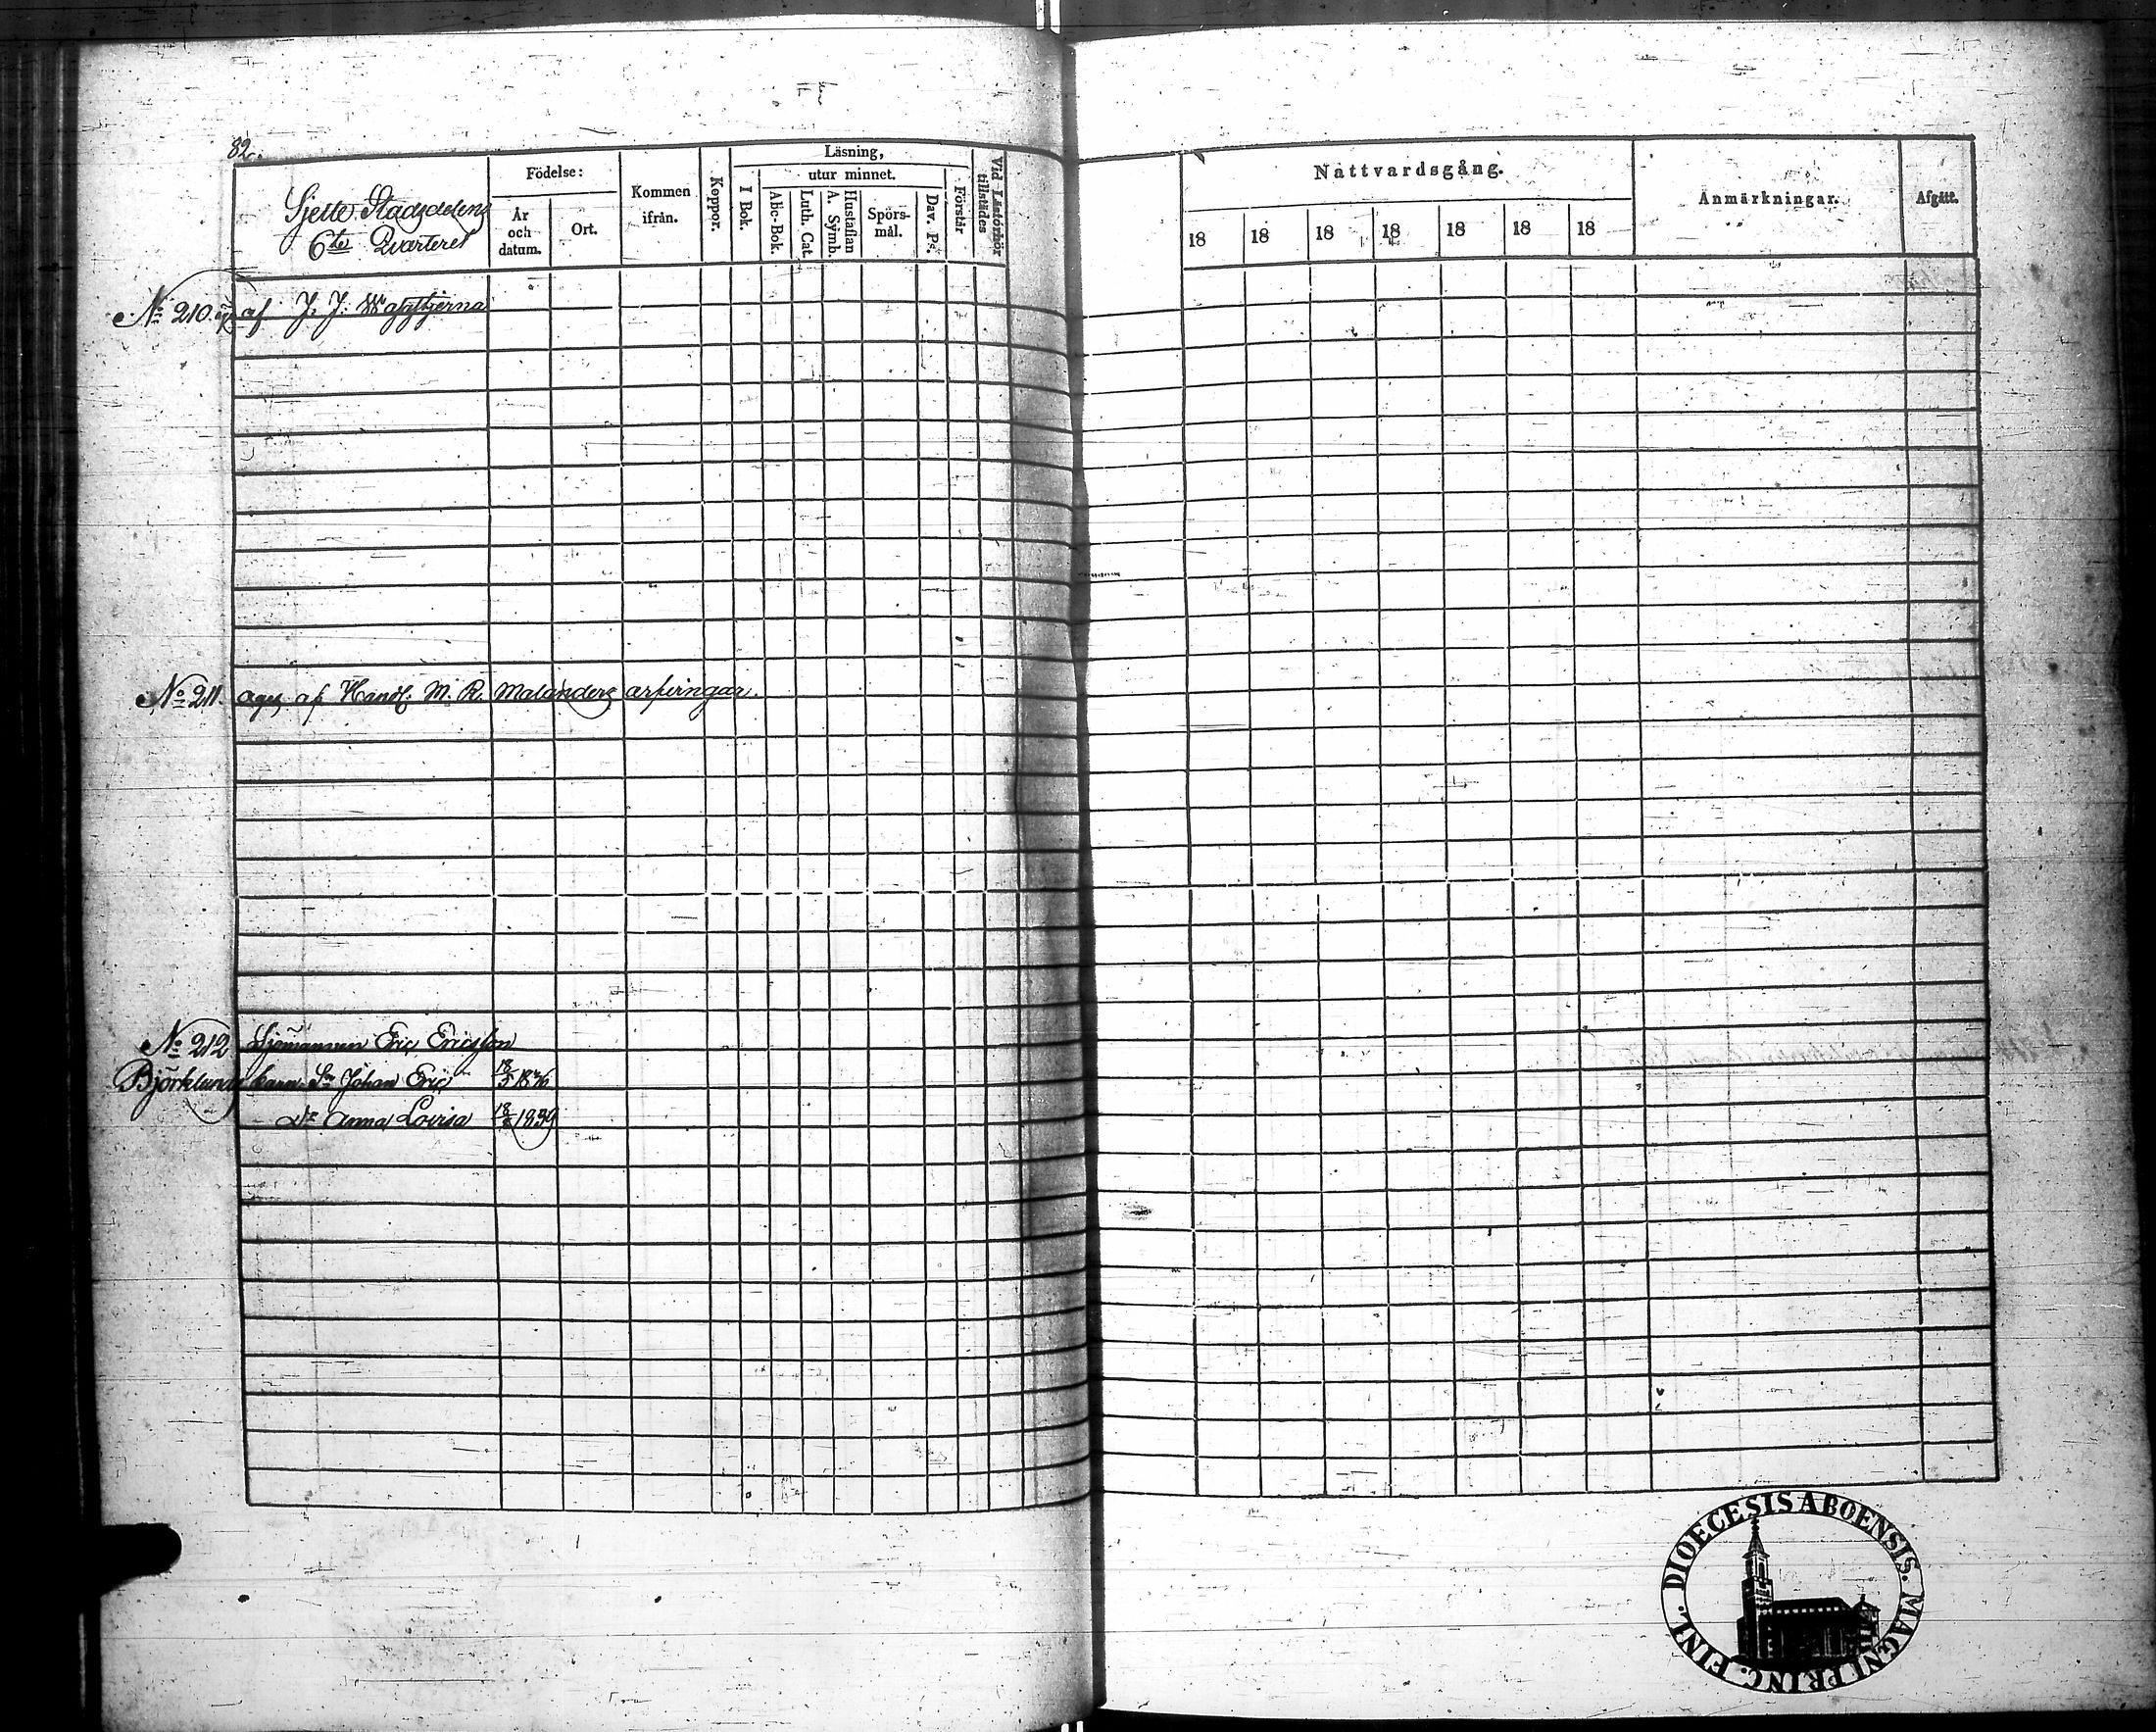 82.
Sjette Stadsdelens
6te Qvarteret
Födelse:
År och datum.
Ort.
Kommen ifrån.
Koppor.
Läsning,
I Bok.
utur minnet.
Abc-Bok.
Luth. Cat.
Hustaflan A. Symb.
Spörsmål.
Dav. Ps.
Förstår
Vid Läsförhör tillstädes
Nattvardsgång.
18 18 18 18 18 18 18
Anmärkningar.
Afgått.
No 210. äg. af J. J.
No 211. äges af Handl. M. R. Malanders arfvingar.
No 212 Sjömannen Eric Ericsson
Björklunds barn Sn Johan Eric
Dr Anna Lovisa 1839
DIOECESIS ABOENSIS. MAGNI PRINC. FINL.